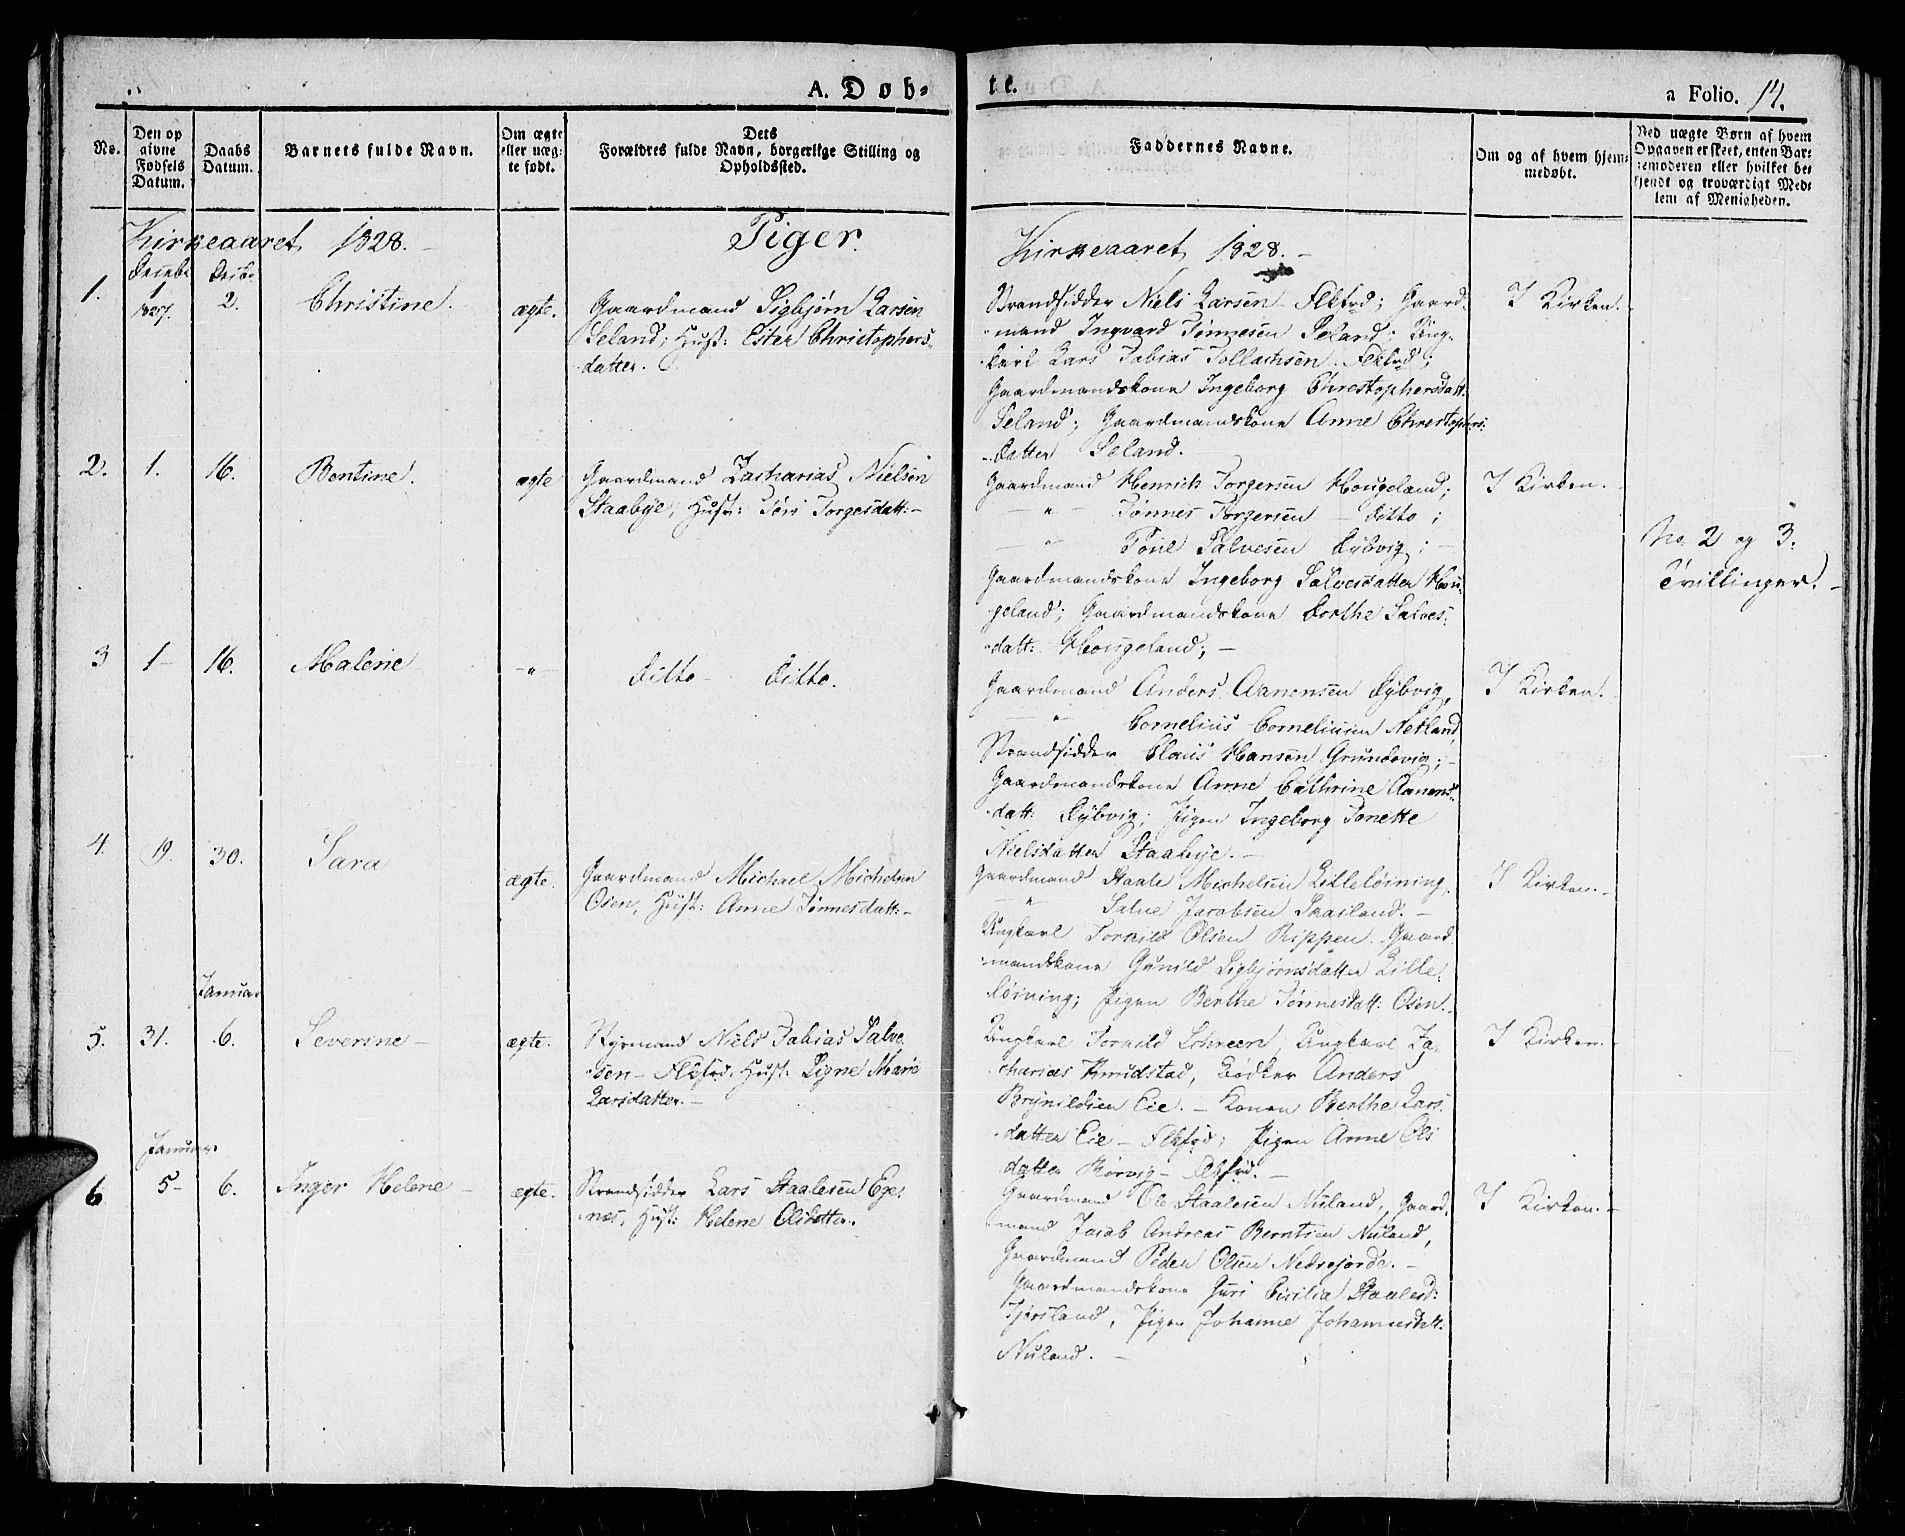 A. Døb-
te.
a Folio. 14.
No.
Den op
givne
Fødsels
Datum.
Daabs
Datum.
Barnets fulde Navn.
Om ægte
eller uæg-
te født.
Dets
Forældres fulde Navn, borgerlige Stilling og
Opholdssted.
Faddernes Navne.
Om og af hvem hjem-
medøbt.
Ved uægte Børn af hvem
Opgaven er skeet, enten Bar-
nemoderen eller hvilket be-
kjendt og troværdigt Med-
lem af Menigheden.
Kirkeaaret 1828.
Piger.
Kirkeaaret 1828.
1.
Decmbr
1
1827.
Decbr
2.
Christine.
ægte.
Gaardmand Sigbjørn Larsen
Seland; Hust: Ester Christophers-
datter.
Strandsidder Niels Larsen Flkfrd; Gaard-
mand Ingvard Tønnesen Seland; Ung-
karl Lars Tobias Tollachsen Flkfrd;
Gaardmandskone Ingeborg Chrestophersdatt:
Seland; Gaardmandskone Anne Chrestophers-
datter Seland.
I Kirken.
2.
1.
16.
Bentine.
ægte
Gaardmand Zacharias Nielsen
Staabye, Hust: Tøri Torgesdatt:
Gaardmand Henrich Torgersen Hougeland;
" Tønnes Torgersen ditto;
" Tønl Salvesen Dybvig;
Gaardmandskone Ingeborg Salvesdatter Hou-
geland; Gaardmandskone Dorthe Salves-
datt: Hougeland;
I Kirken.
No. 2 og 3.
Tvillinger.
3
1
16.
Malene
"
Ditto Ditto.
Gaardmand Anders Aanensen Dybvig,
" Cornelius Corneliusen Netland,
Strandsidder Claus Hansen Grundevig;
Gaardmandskone Anne Cathrine Aanens-
datt: Dybvig; Pigen Ingeborg Tonette
Nielsdatter Staabye.
I Kirken.
4.
19.
30.
Sara
ægte.
Gaardmand Michael Michelsen
Osen, Hust: Anne Tønnesdatt:
Gaardmand Staale Michelsen Lilleløining,
" Salve Jacobsen Skailand.
Ungkarl Torkild Olsen Rippen. Gaard-
mandskone Gunild Sigbjørnsdatter Lille-
løining; Pigen Berthe Tønnesdatt: Osen.
I Kirken.
5.
31.
Januar
6.
Severine
ægte.
Styrmand Niels Tobias Salve-
sen Flkfrd. Hust: Signe Marie
Larsdatter.
Ungkarl Torkild Schreen, Ungkarl Za-
charias Knudstad, Bødker Anders
Brynildsen Eie. Konen Berthe Lars-
datter Eie Flkfrd; Pigen Anne Ols
datter Rørvig Flkfrd.
I Kirken.
6
Januar
5
6.
Inger Helene
ægte.
Strandsidder Lars Staalesen Ege-
næs, Hust: Helene Olsdatter.
Gaardmand Ole Staalesen Nuland, Gaard-
mand Jacob Andreas Berntsen Nuland,
Gaardmand Peder Olsen Nedrejorde.
Gaardmandskone Guri Cicilia Staalesd:
Tjørsland, Pigen Johanne Johannesdatt:
Nuland.
I Kirken.